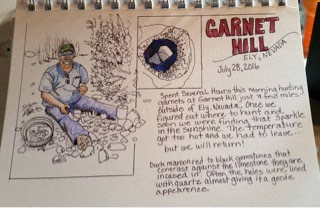 GARNET
HILL
ELY, NEVADA
July 28, 2016
Spent Several Hours this morning hunting
garnets at Garnet Hill just a few miles
outside of Ely, Nevada. Once we
figured out where to hunt and
soon we were finding that sparkle
in the sunshine. The temperature
got too hot and we had to leave....
but we will return!
Dark maroon red to black gemstones that
contrast against the limestone they are
incased in. Often the holes were lined
with quartz almost giving it a geode
appearence.